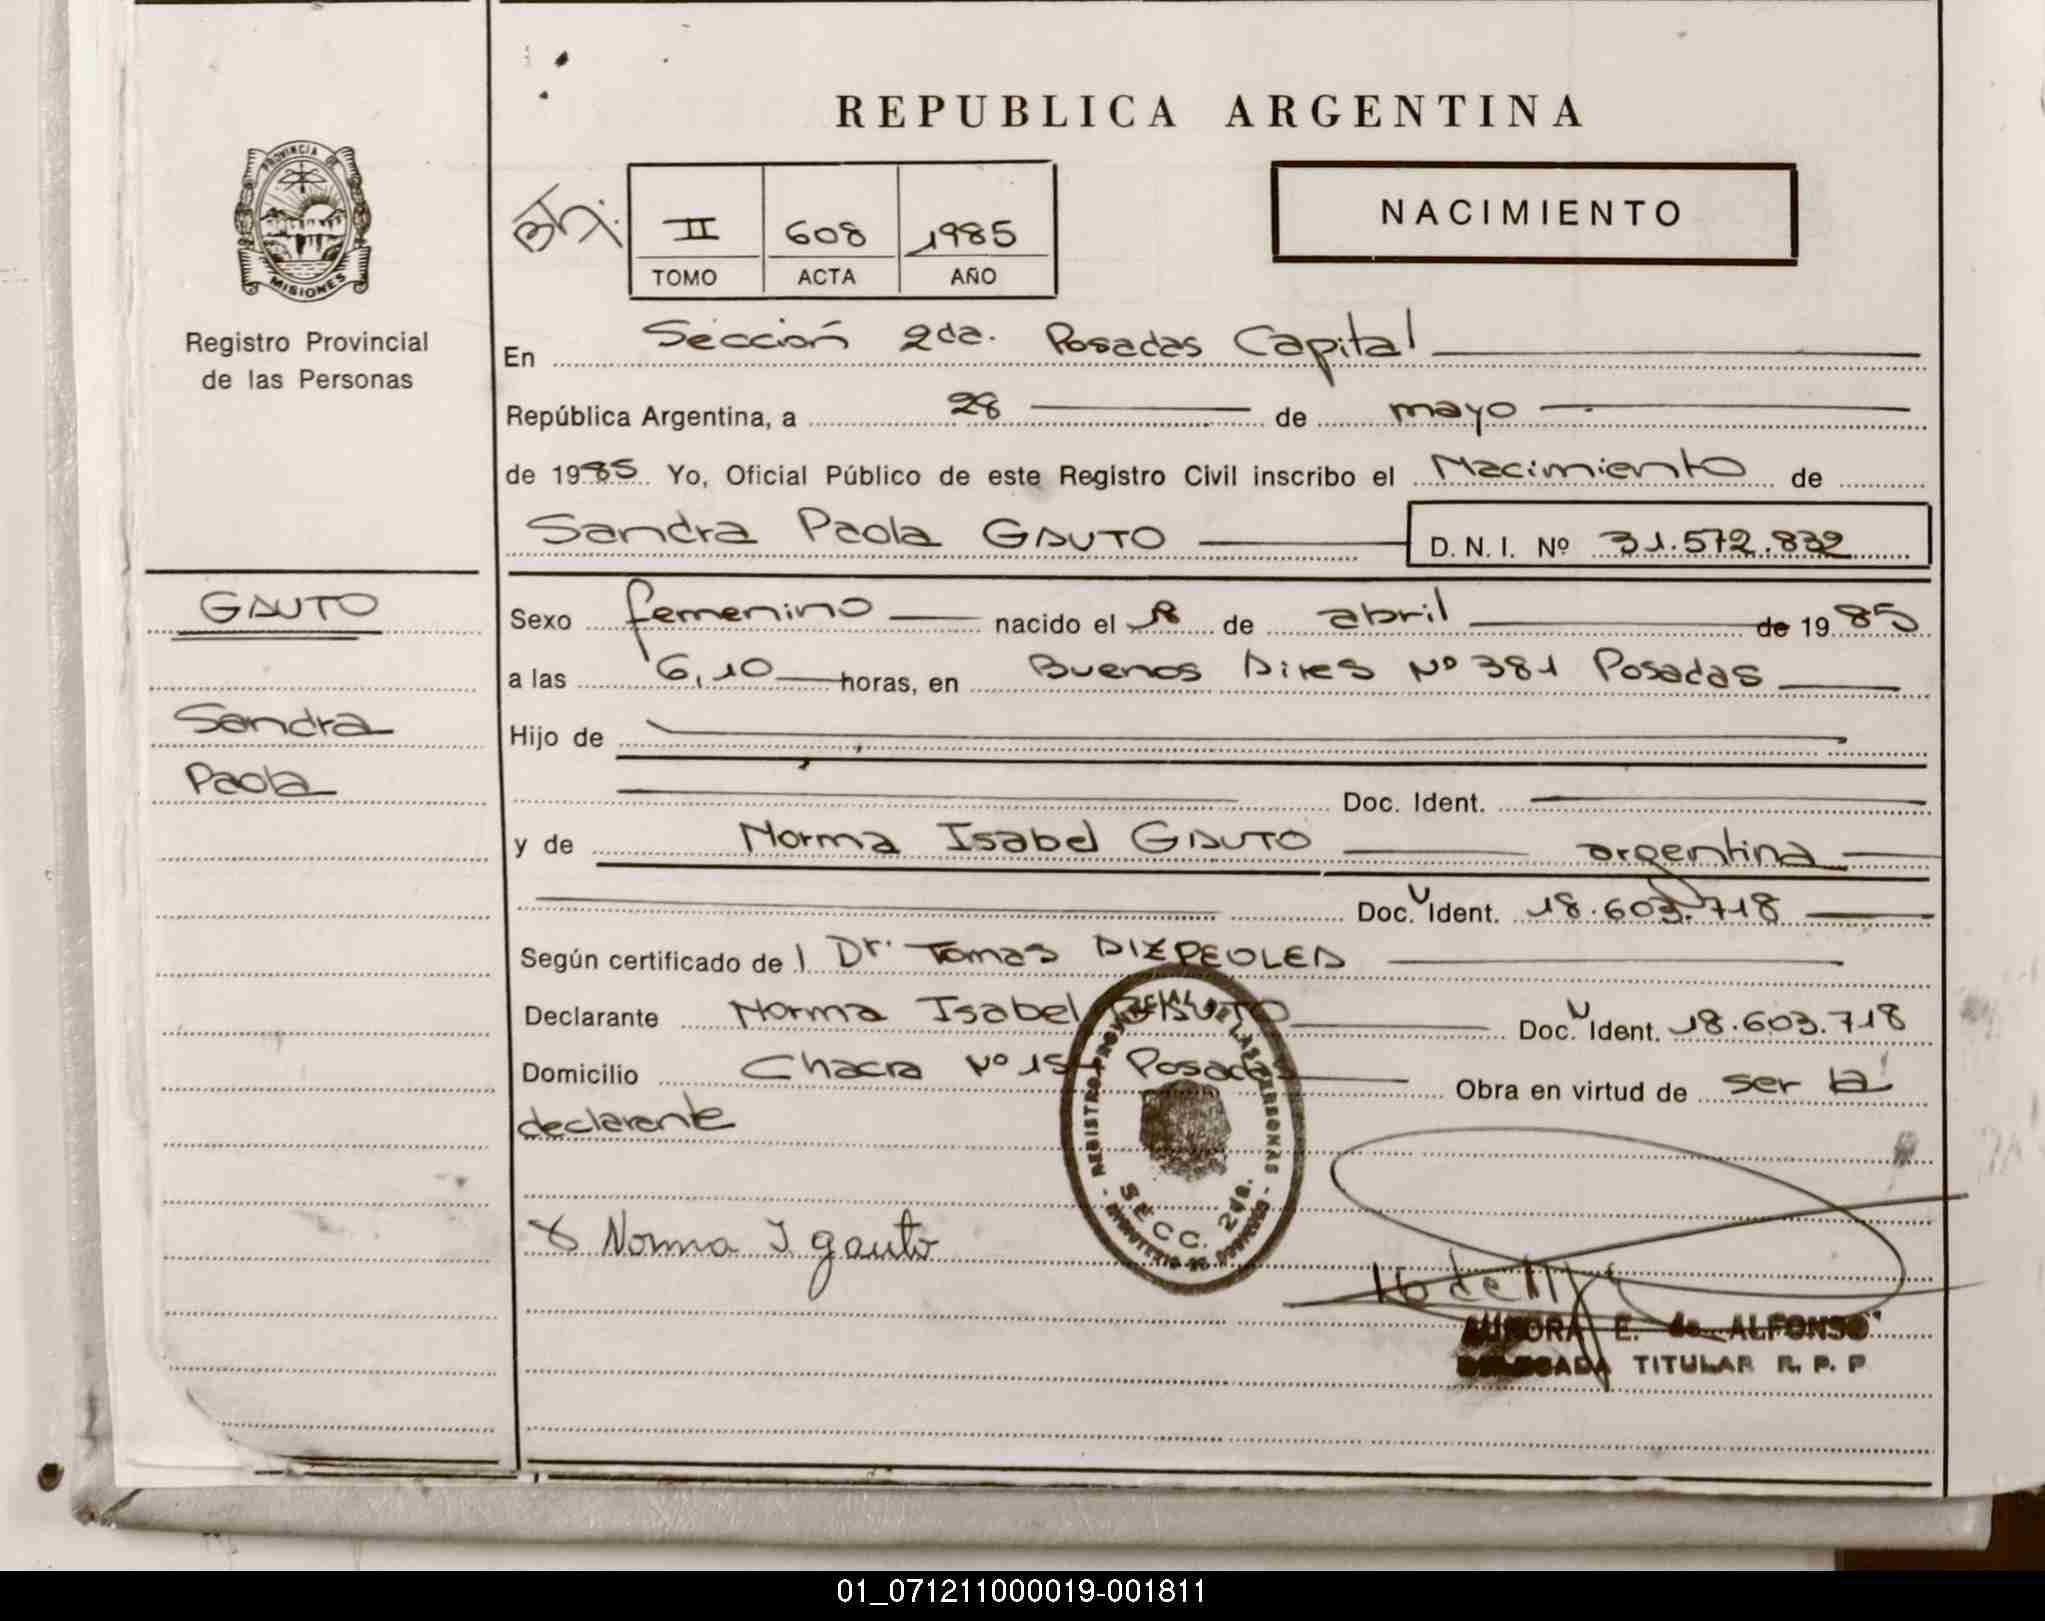 REPUBLICA ARGENTINA
PROVINCIA DE
MISIONES
Registro Provincial
de las Personas
II 608 1985
TOMO ACTA AÑO
NACIMIENTO
En Sección 2da. Posadas Capital
República Argentina, a 28 de mayo
de 1985 Yo, Oficial Público de este Registro Civil inscribo el Nacimiento de
Sandra Paola GAUTO D. N. I. Nº 31.572.832
GAUTO
Sandra
Paola
Sexo femenino nacido el 18 de abril de 1985
a las 6,10 horas, en Buenos Aires Nº 381 Posadas
Hijo de
Doc. Ident.
y de Norma Isabel GAUTO argentina
Doc. U Ident. 18.603.718
Según certificado de l Dr. Tomas
Declarante Norma Isabel GAUTO Doc. U Ident. 18.603.718
Domicilio Chacra Nº Posadas Obra en virtud de ser la
declarante
REGISTRO PROVINCIAL DE LAS PERSONAS
SECC. 2da.
Norma I gauto
AURORA E. de ALFONSO
DELEGADA TITULAR R. P. P
01_071211000019-001811